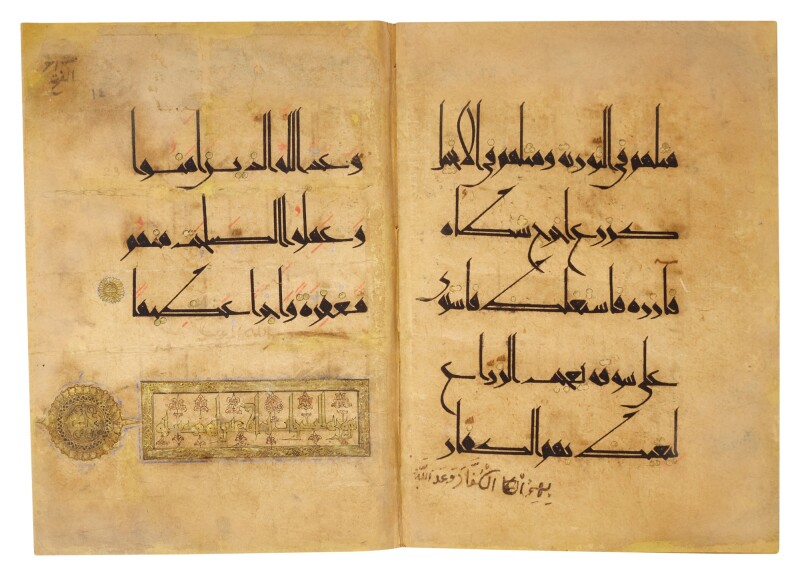 مثلهم في التورية ومثلهم في الانجيل
كزرع اخرج شطاه
فآزره فاستغلظ فاستوى
على سوقه يعجب الزراع
ليغيظ بهم الكفار
بهم الكفار وعد الله
الفتح
وعد الله الذين امنوا
وعملوا الصلحت منهم
مغفرة واجرا عظيما